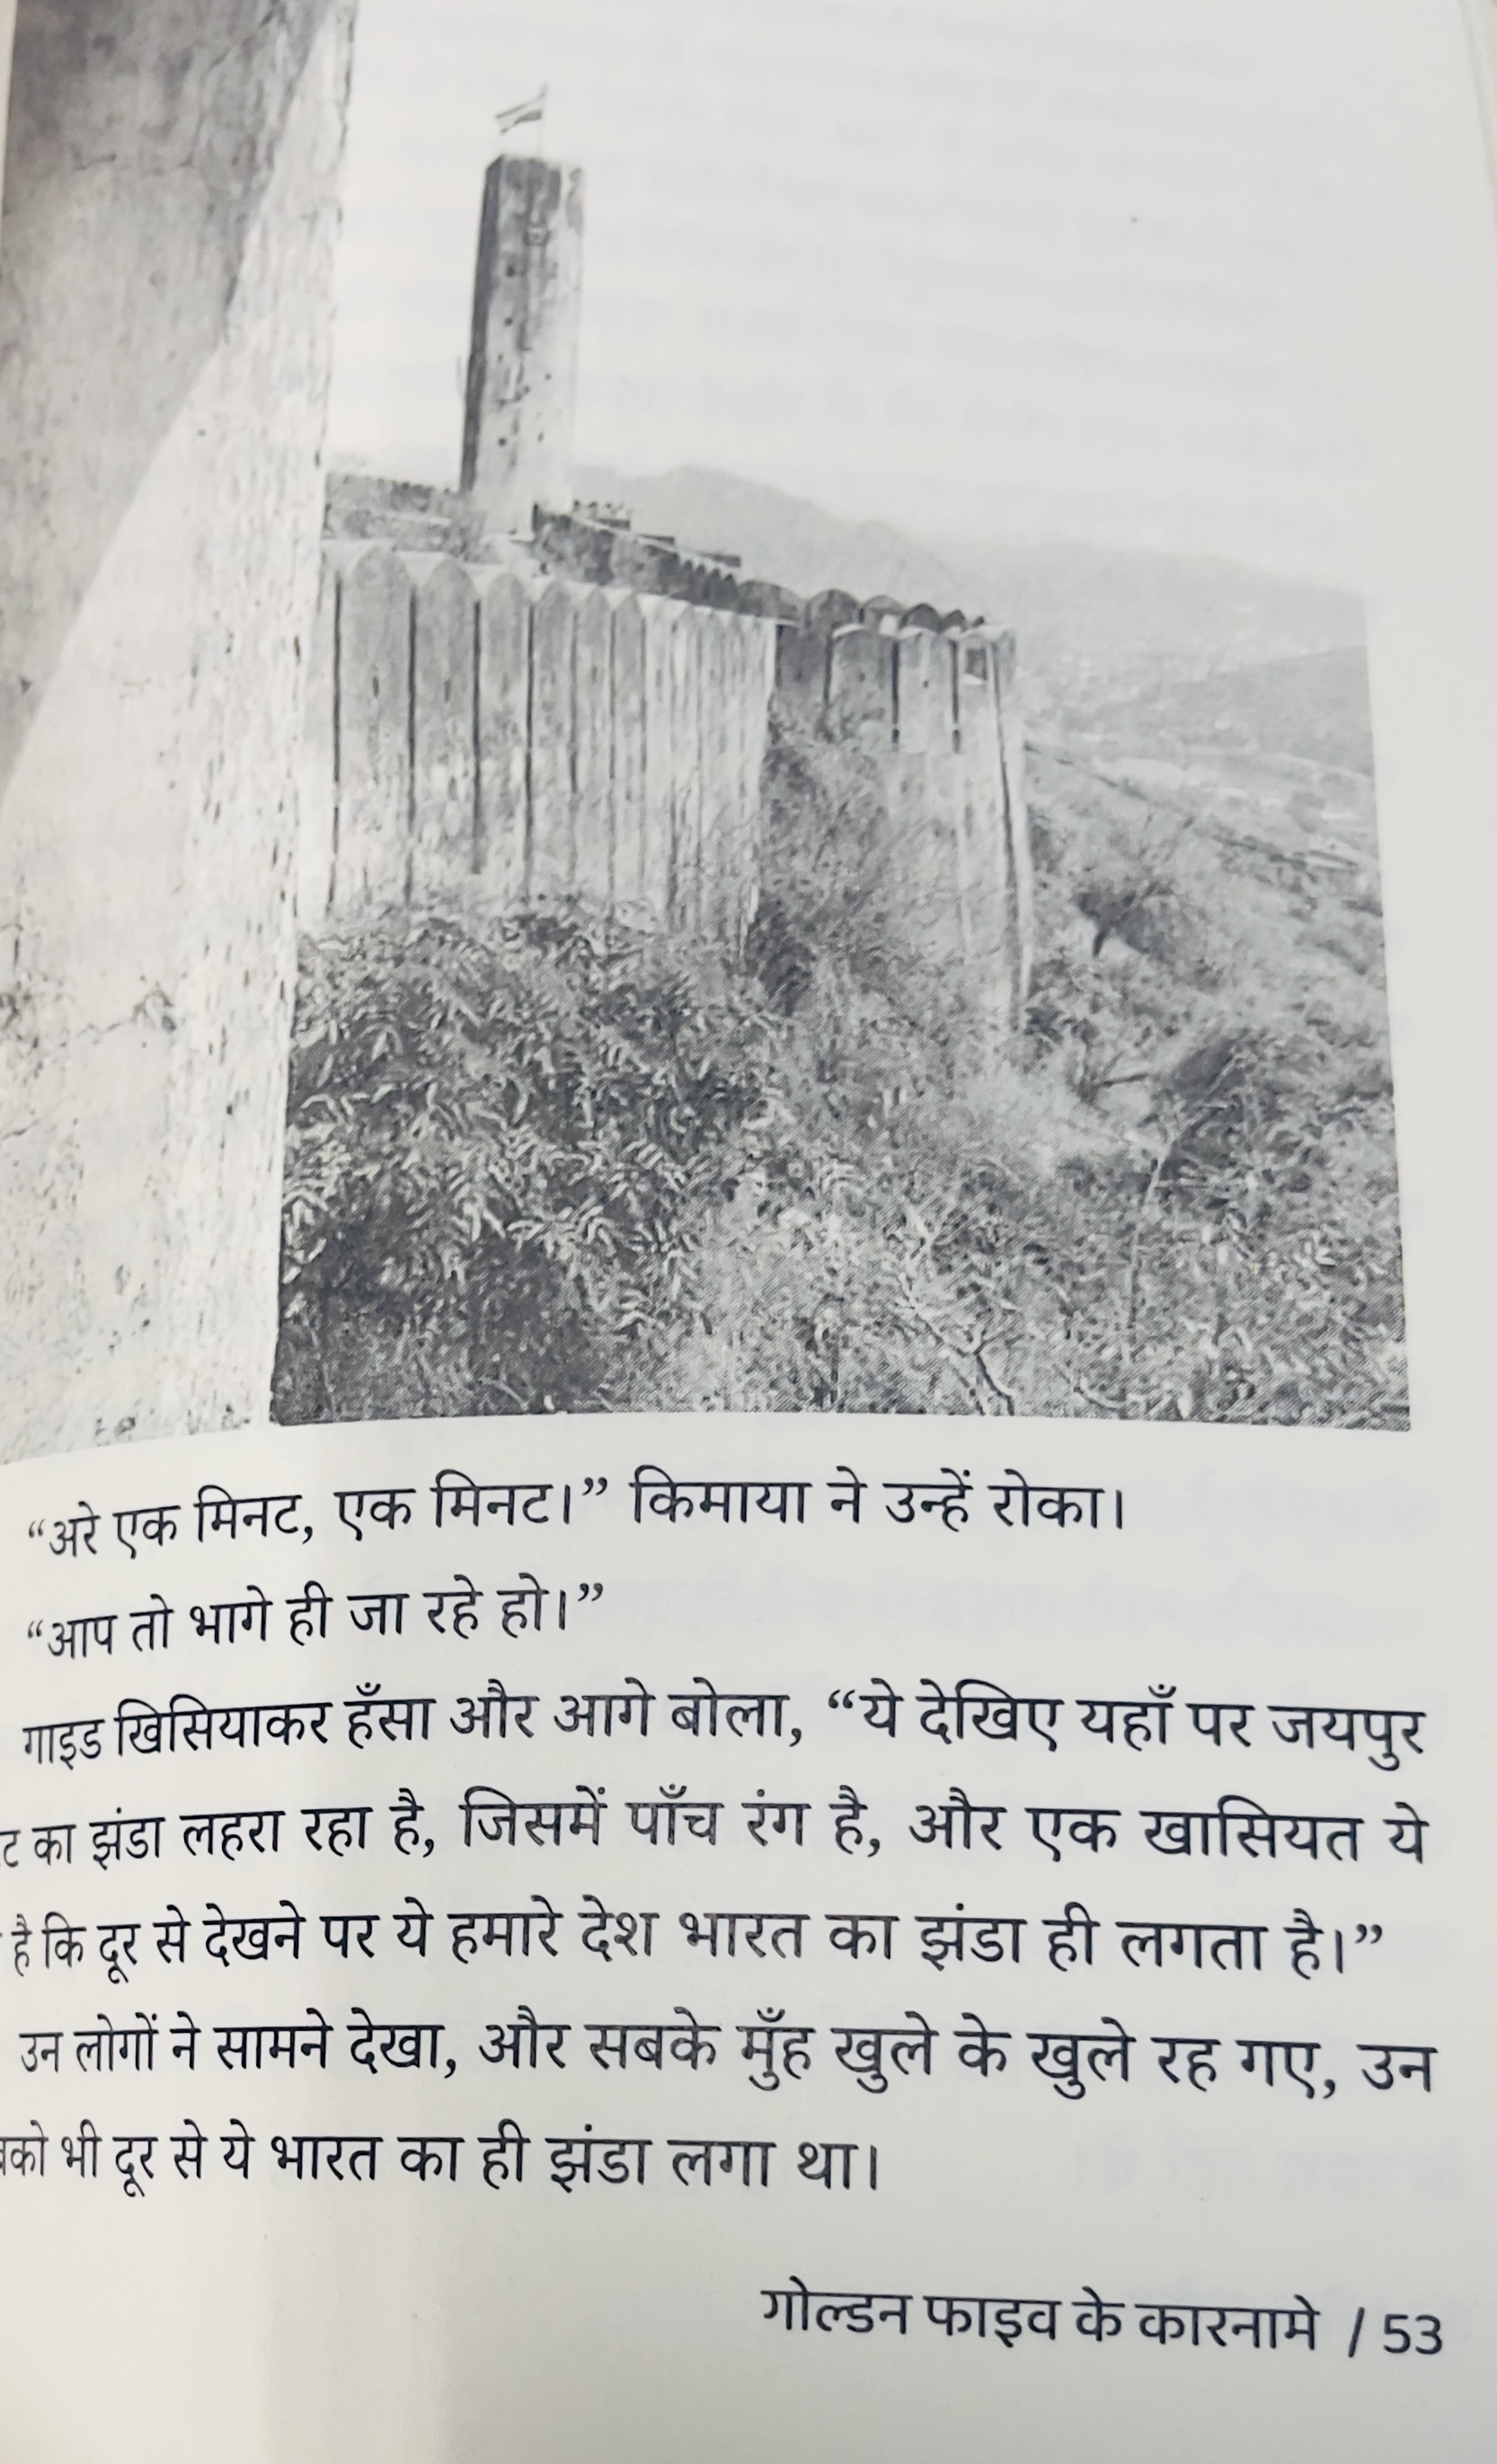 “अरे एक मिनट, एक मिनट।” किमाया ने उन्हें रोका।
“आप तो भागे ही जा रहे हो।”
गाइड खिसियाकर हँसा और आगे बोला, “ये देखिए यहाँ पर जयपुर
का झंडा लहरा रहा है, जिसमें पाँच रंग है, और एक खासियत ये
है कि दूर से देखने पर ये हमारे देश भारत का झंडा ही लगता है।”
उन लोगों ने सामने देखा, और सबके मुँह खुले के खुले रह गए, उन
भी दूर से ये भारत का ही झंडा लगा था।
गोल्डन फाइव के कारनामे / 53